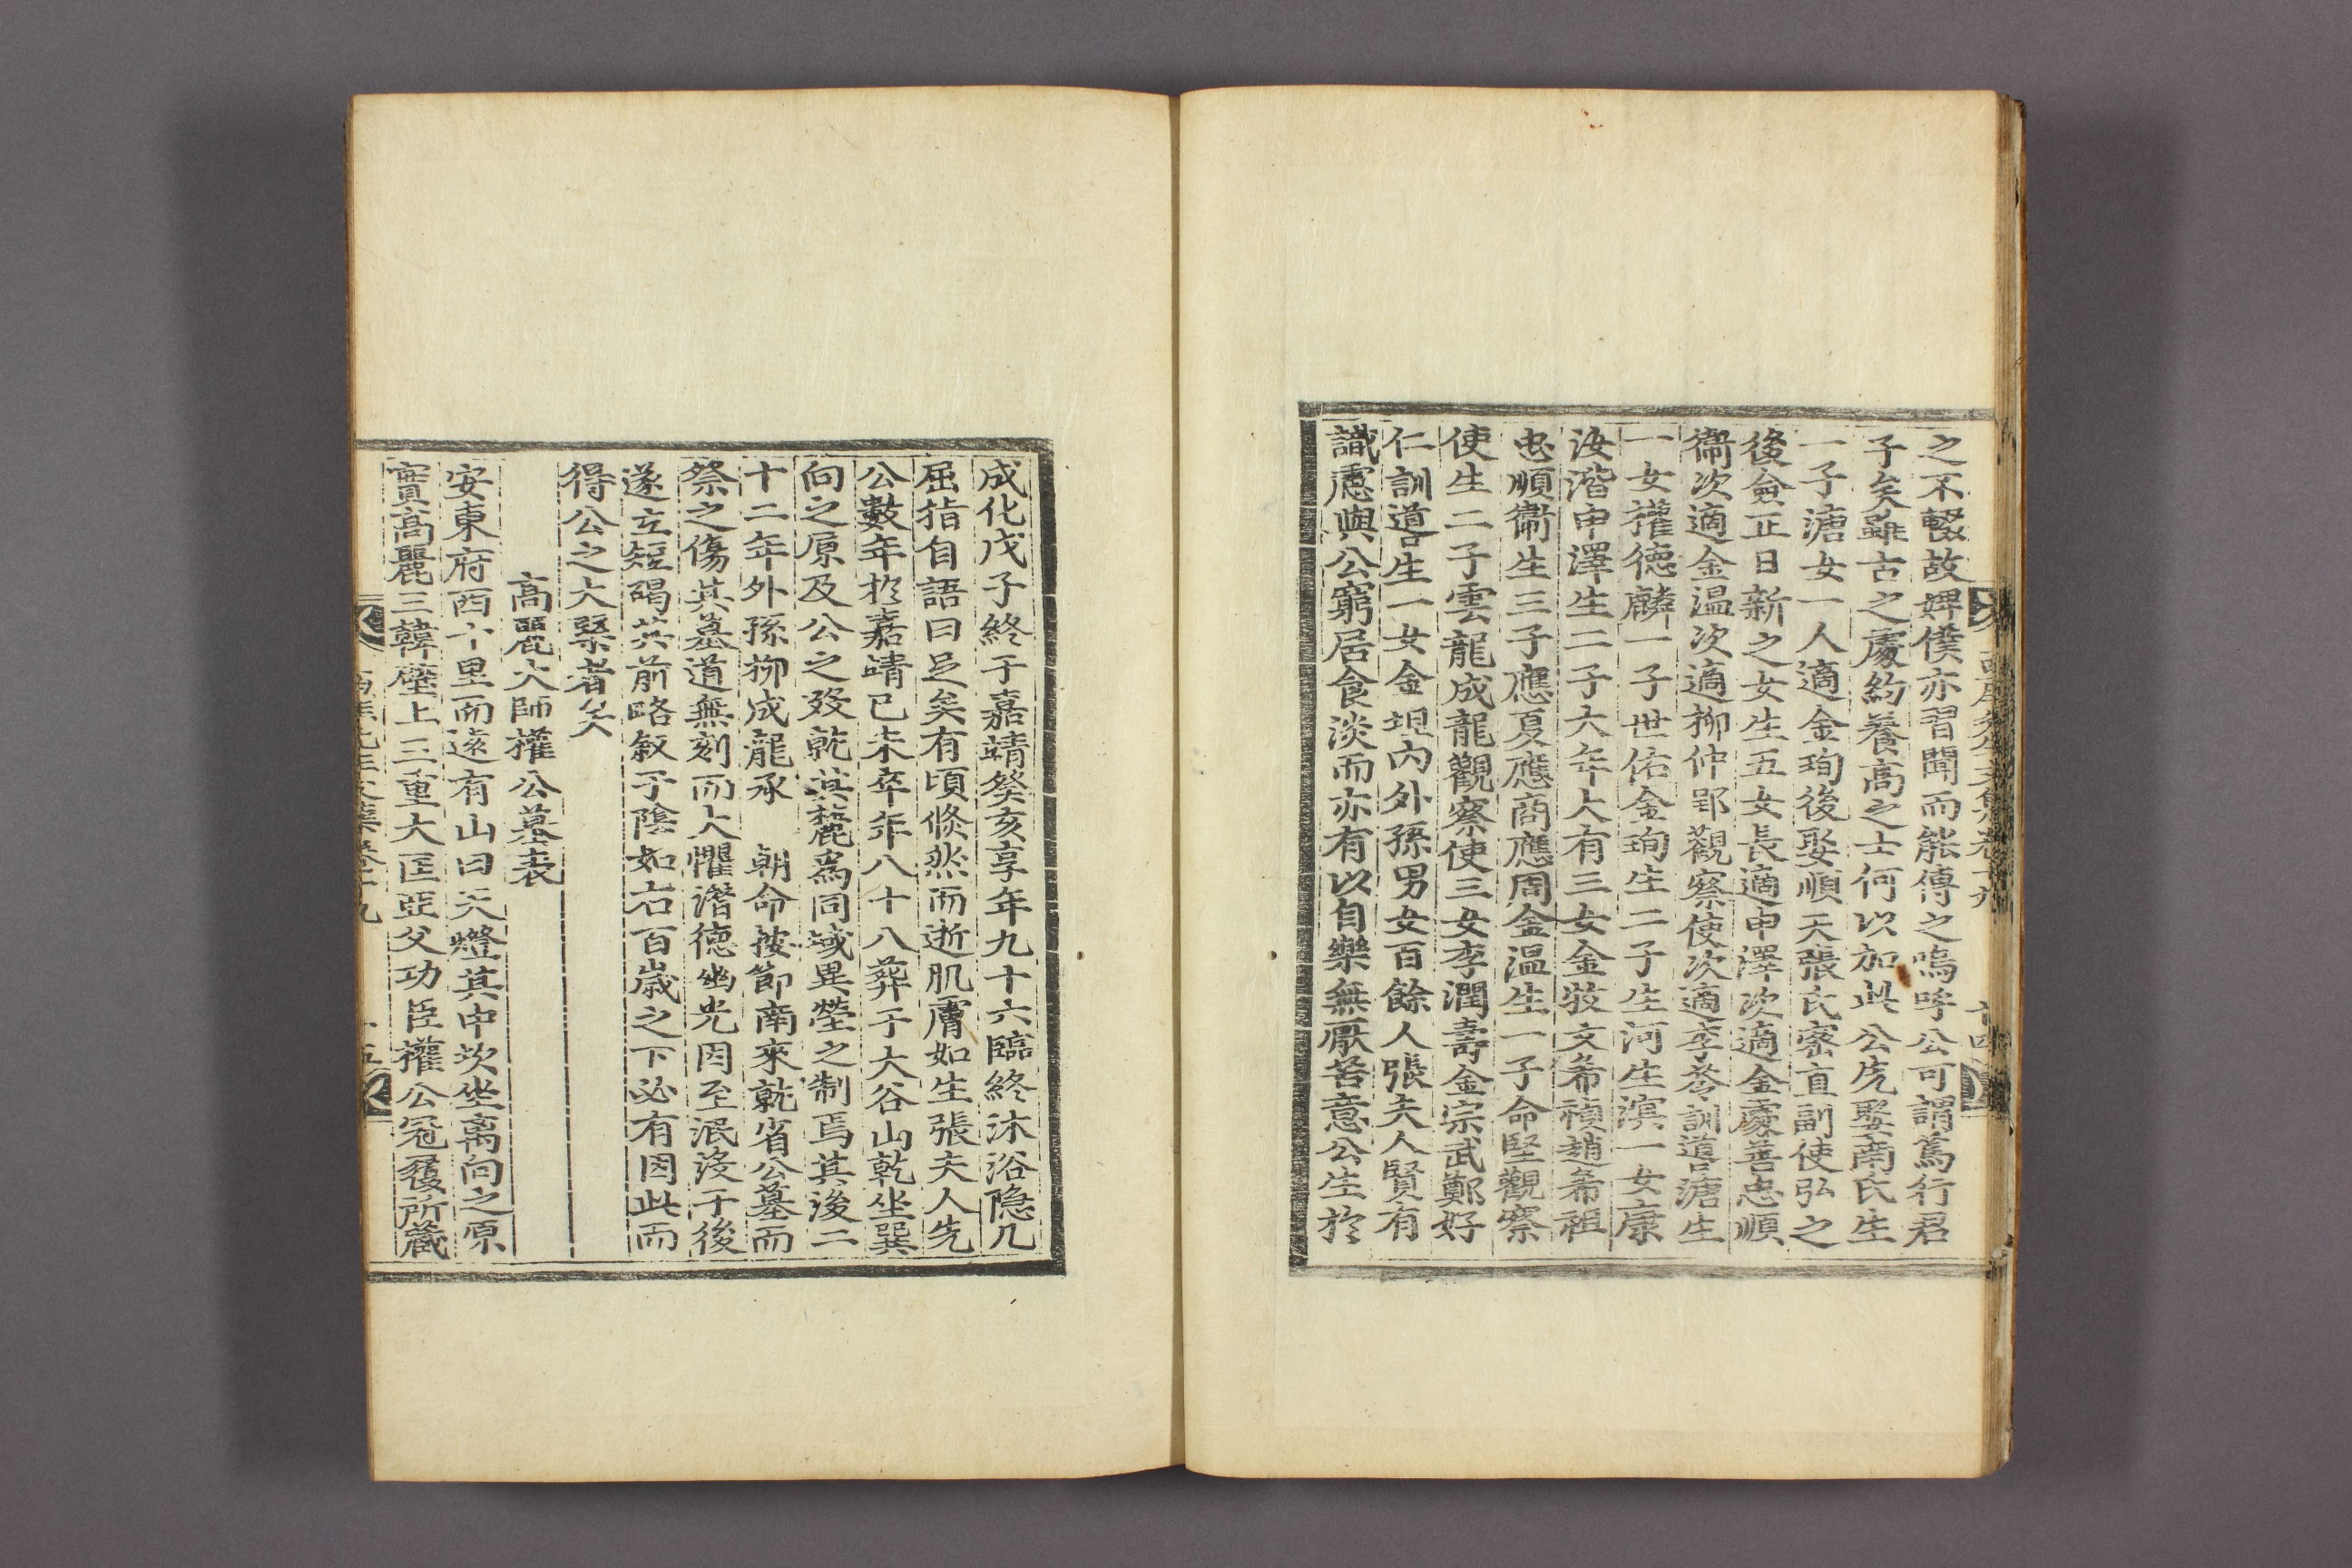 之不輟故婢僕亦習聞而能傳之嗚呼公可謂篤行君
子矣雖古之處約養高之士何以加此公先娶南氏生
一子溏女一人適金珣後娶順天張氏密直副使弘之
後僉正日新之女生五女長適申澤次適金處善忠順
衞次適金温次適柳仲郢觀察使次適李苓訓導溏生
一女權德麟一子世佑金珣生二子生河生溟一女康
汝諧申澤生二子大年大有三女金牧文希禎趙希祖
忠順衞生三子應夏應商應周金温生一子命堅觀察
使生二子雲龍成龍觀察使三女李潤壽金宗武鄭好
仁訓導生一女金垻內外孫男女百餘人張夫人賢有
識慮與公窮居食淡而亦有以自樂無厭苦意公生於
十四
成化戊子終于嘉靖癸亥享年九十六臨終沐浴隐几
屈指自語曰足矣有頃倐然而逝肌膚如生張夫人先
公數年於嘉靖已未卒年八十八葬于大谷山乾坐巽
向之原及公之歿就其麓爲同域異塋之制焉其後二
十二年外孫柳成龍承　朝命按節南來就省公墓而
祭之傷其墓道無刻而大懼潛德幽光因至泯沒于後
遂立短碣共前略叙于陰如右百歲之下必有因此而
得公之大槩者矣
高麗大師權公墓表
安東府西十里而遠有山曰天燈其中坎坐离向之原
實高麗三韓壁上三重大匡亞父功臣權公冠履所藏